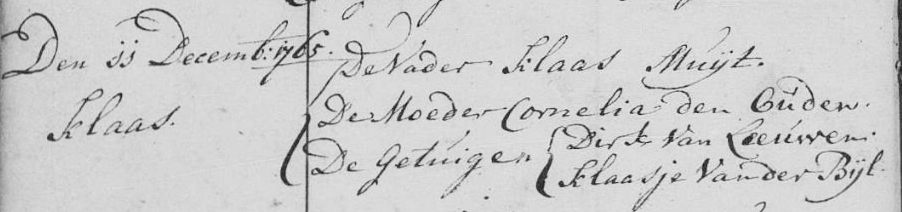 Den 11 Decemb: 1765.
Klaas.
De Vader Klaas Muijt.
De Moeder Cornelia den Ouden.
De Getuigen
Dirk Van Leeuwen.
Klaasje Van der Bijl.